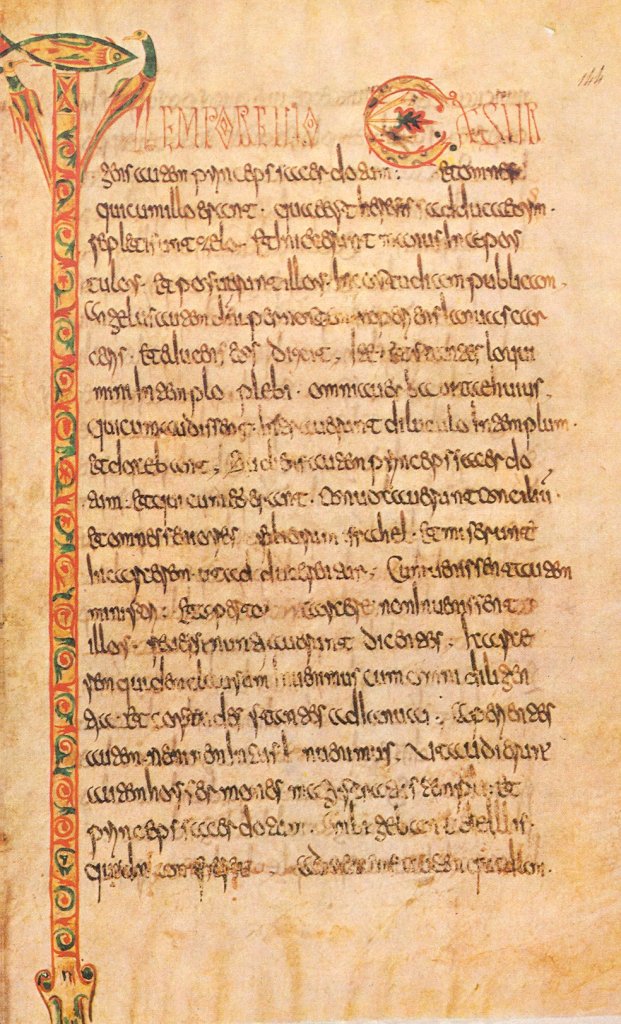 IN TEMPORE ILLO EXSUR
gens autem princeps sacerdotum. et omnes
qui cum illo erant. quae est heresis sadducaeorum.
repleti sunt zelo. et iniecerunt manus in apos
tulos. et posuerunt illos. in custodiam publicam.
Angelus autem dni per noctem aperiens ianuas carce
ris. et educens eos dixit. Ite et stantes loqui
mini in templo plebi. omnia verba vitae huius.
qui cum audissent. intraverunt diluculo in templum.
et docebant. autem princeps sacerdo
tum. et qui cum eo erant. convocaverunt conciliū.
et omnes seniores filiorum israhel. et miserunt
in carcerem. ut adducerentur. Cum venissent autem
ministri. et aperto carcere non invenissent
illos. reversi nuntiaverunt dicentes. carce
rem quidem clausum invenimus cum omni diligen
tia. et custodes stantes ad ianuas. Aperientes
autem. neminem intus invenimus. Ut audierunt
autem hos sermones magistratus templi. et
princeps sacerdotum. ambigebant de illis.
quidnam autem quidam.
144